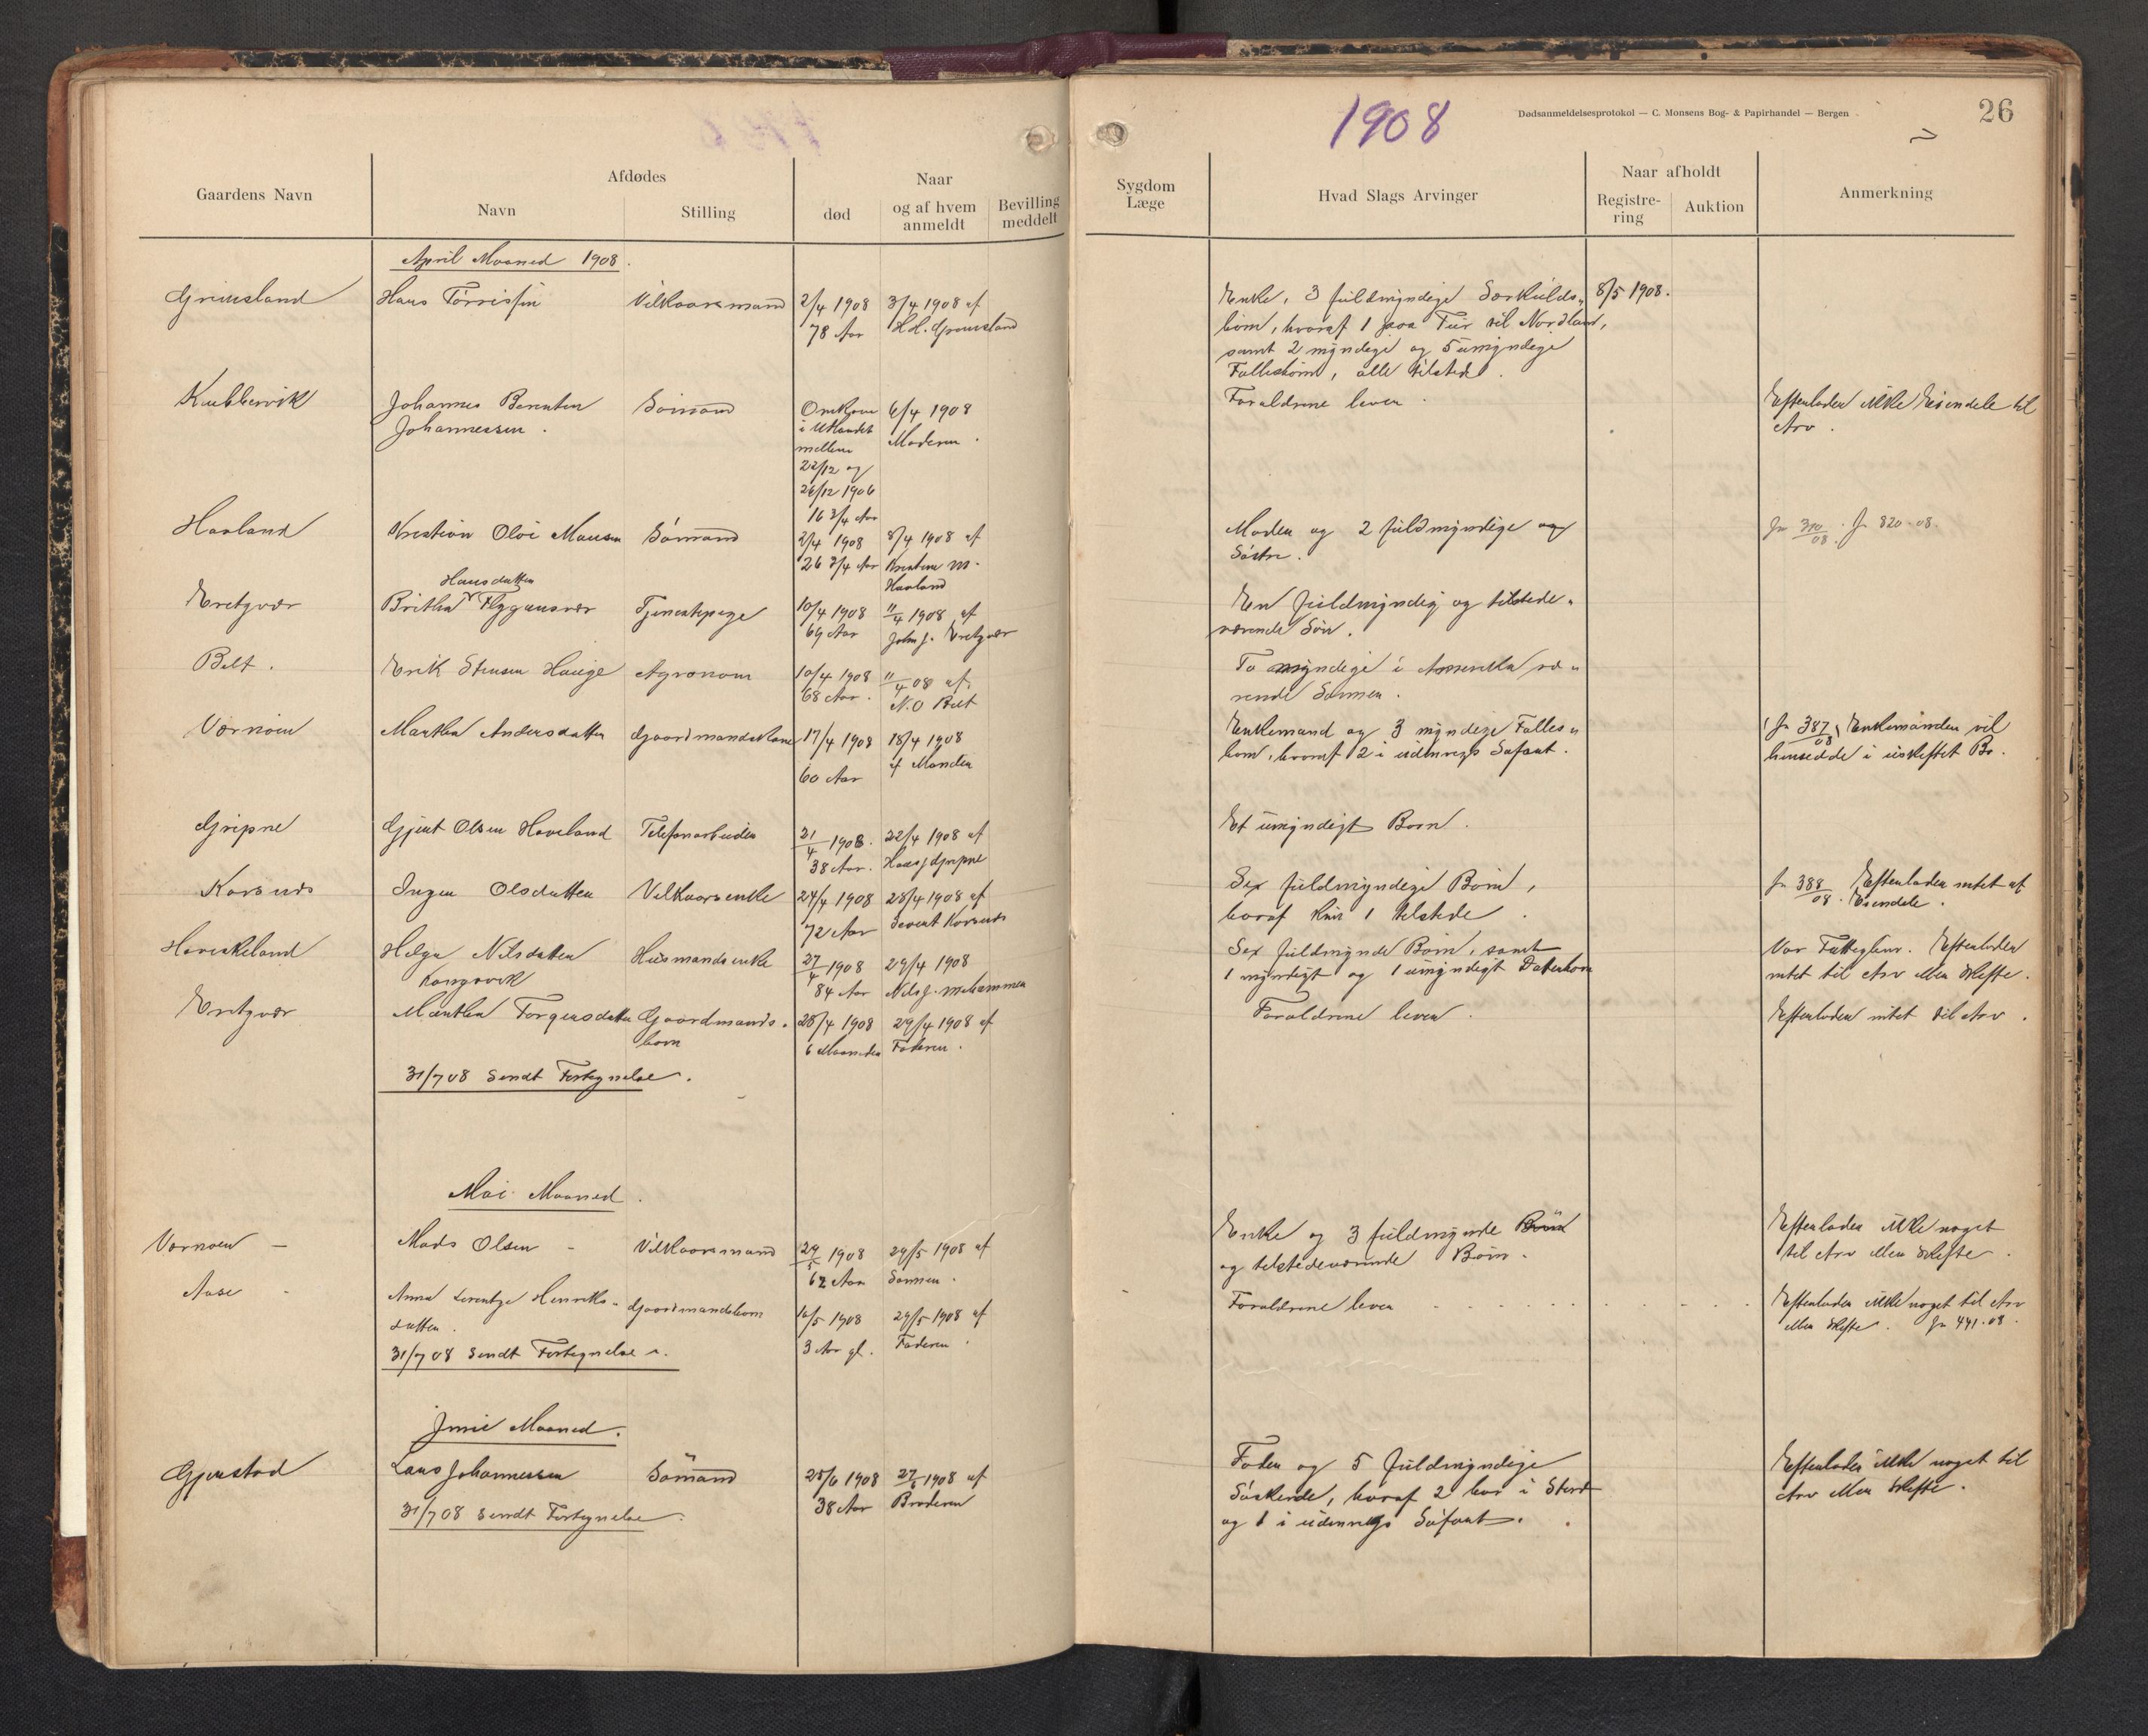 1908
Dødsanmeldelsesprotokol — C. Monsens Bog- & Papirhandel — Bergen
26
Gaardens Navn
Afdødes
Navn
Stilling
Naar
død
og af hvem anmeldt
Bevilling meddelt
Sygdom Læge
Hvad Slags Arvinger
Naar afholdt
Registrering
Auktion
Anmerkning
April Maaned 1908.
Grimsland Hans Tørrissen Vilkaarsmand 2/4 1908 3/4 1908 af Enke, 3 fuldmyndige Særkulds- 8/5 1908.
78 Aar H.H. Grimsland børn, hvoraf 1 paa Tur til Nordland,
samt 2 myndige og 5 umyndige
Fællesbørn, alle tilstede.
Kubbervik Johannes Berentin Sømand Omkom 6/4 1908 Forældrene lever. Efterlader ikke Eiendele til
Johannessen. i Utlandet Moderen. Arv.
mellem
22/12 og
26/12 1906
16 3/4 Aar
Haaland Kristian Olai Monsen Sømand 2/4 1908 8/4 1908 af Moder og 2 fuldmyndige
26 3/4 Aar M. Søstre. Jr 310/08. Jr 820-08.
Haaland
Hansdatter
Eretzvær Britha Flygansvær Tjenestepige 10/4 1908 11/4 1908 af En fuldmyndig og tilstede-
69 Aar John J. Eretzvær værende Søn.
Belt. Erik Stensen Hauge Agronom 10/4 1908 11/4 08 af To myndige i Amerika væ-
68 Aar. N.O Belt rende Sønner.
Værnøen Martha Andersdatter Gaardmandskone 17/4 1908 18/4 1908 Enkemand og 3 myndige Fælles- Jr 387/08, Enkemanden vil
60 Aar af Manden børn, hvoraf 2 i udenrigs Søfart. hensidde i uskiftet Bo.
Gripne Gjert Olsen Haveland Telefonarbeider 21/4 1908. 22/4 1908 af Et umyndigt Barn.
38 Aar. Hans J Gripne
Korsnes Inger Olsdatter Vilkaarsenke 24/4 1908 28/4 1908 af Sex fuldmyndige Børn, Jr 388/08. Efterlader intet af
72 Aar Sevent Korsnes hvoraf kun 1 tilstede. Eiendele.
Haveskeland Helga Nilsdatter Husmandsenke 27/4 1908 29/4 1908 Sex fuldmynde Børn, samt Var Fattiglem. Efterlader
Kongsvik 84 Aar Nils J. 1 myndigt og 1 umyndigt Datterbarn intet til Arv eller Skifte.
Eretzvær Martha Torgersdatter Gaardmands- 28/4 1908 29/4 1908 af Forældrene lever. Efterlader intet til Arv.
barn 6 Maaneder Faderen.
31/7 08 Sendt Fortegnelse.
Mai Maaned.
Værnøen - Mads Olsen - Vilkaarsmand 29/5 1908 29/5 1908 af Enke og 3 fuldmynde Børn Efterlader ikke noget
62 Aar Sønnen. og tilstedeværende Børn. til Arv eller Skifte.
Aase - Anna Lerentze Henriks- Gaardmandsbarn 16/5 1908 29/5 1908 af Forældrene lever Efterlader ikke noget til Arv
datter. 3 Aar gl. Faderen. eller Skifte. Jr 441-08.
31/7 08 Sendt Fortegnelse.
Juni Maaned.
Gjerstad Lars Johannessen Sømand 25/6 1908 27/6 1908 af Fader og 5 fuldmyndige Efterlader ikke noget til
38 Aar Broderen Søskende, hvoraf 2 bor i Stord Arv eller Skifte.
31/7 08 Sendt Fortegnelse. og 1 i udenrigs Søfart.